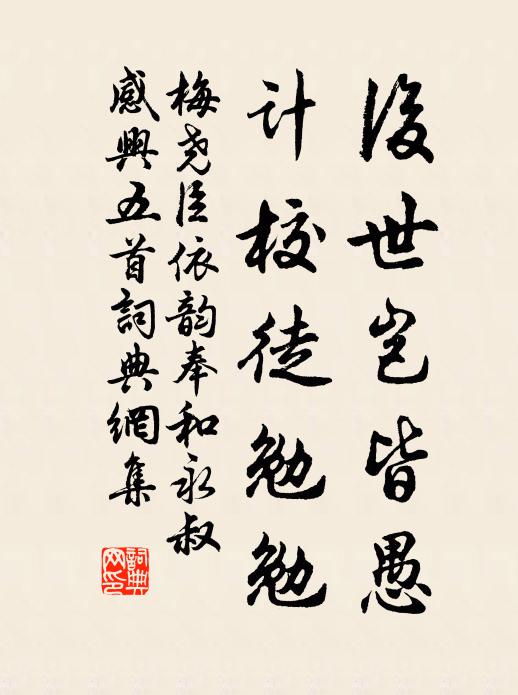 後世岂皆愚
计校徒勉勉
梅尧臣依韵奉和永叔
感興五首詞典網集
詞典
网印